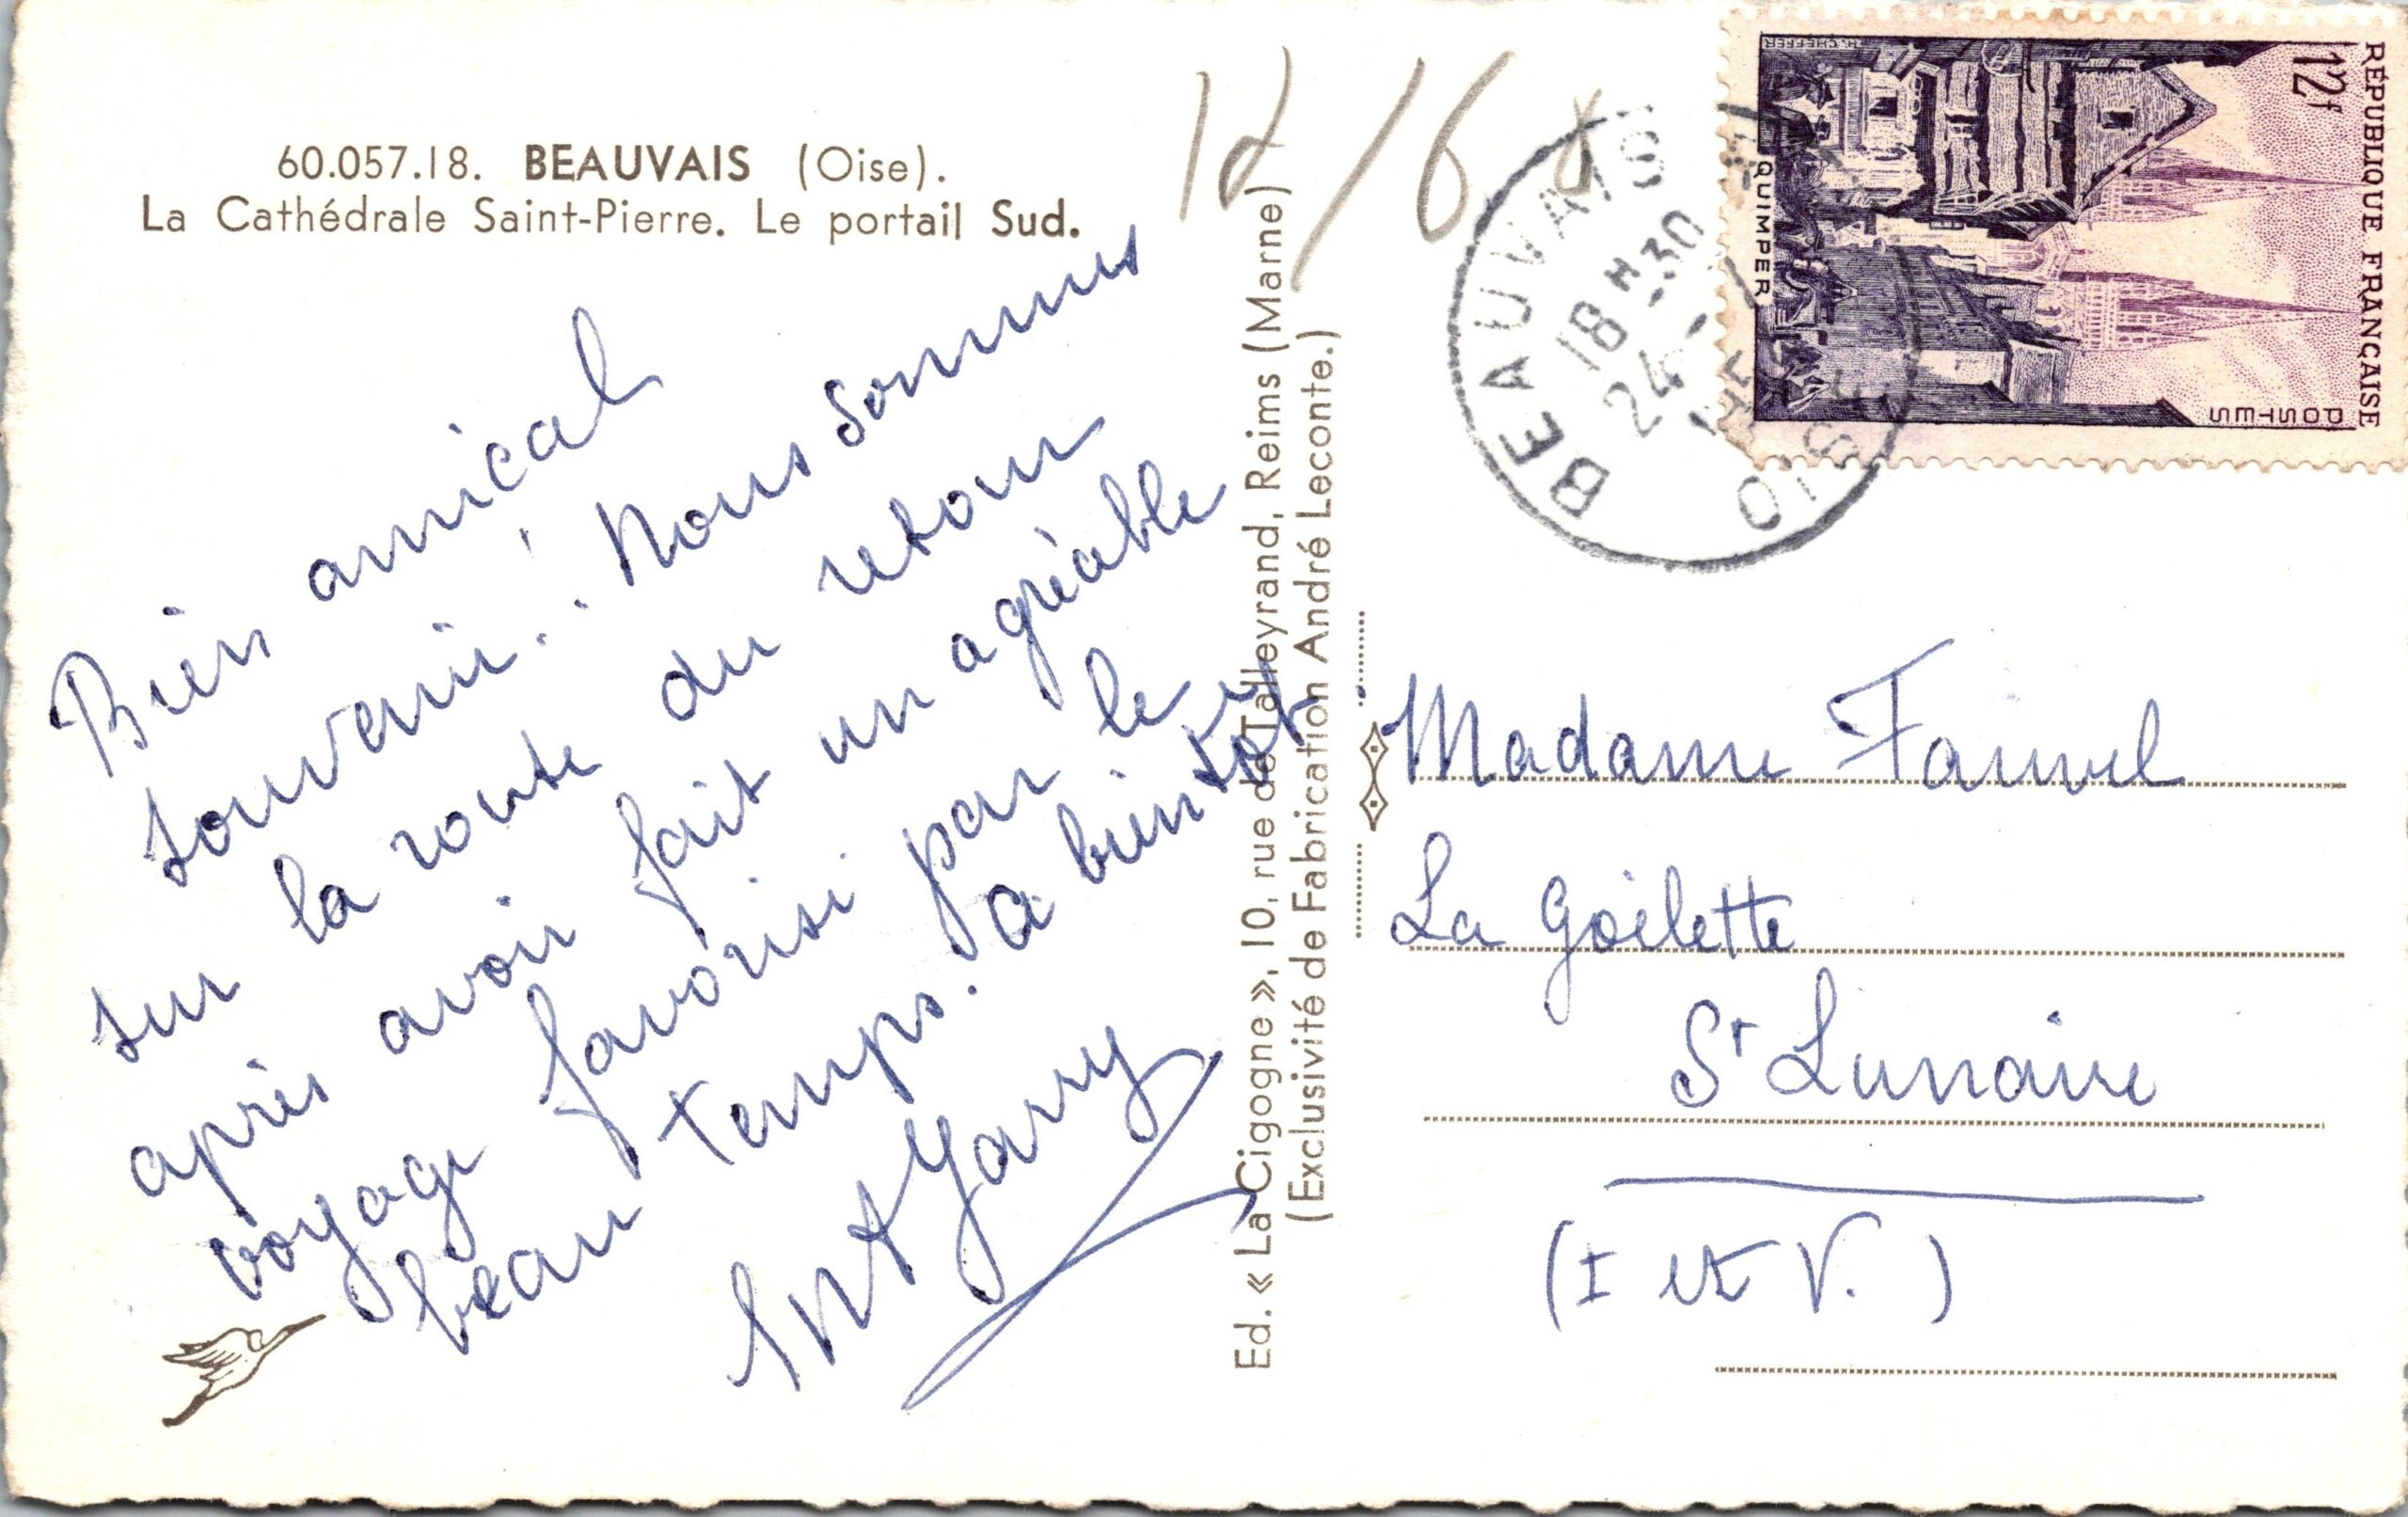 60.057.18. BEAUVAIS (Oise).
La Cathédrale Saint-Pierre. Le portail Sud.
Bien amical
souvenir. Nous sommes
sur la route du retour
après avoir fait un agréable
voyage favorisé par le
beau temps. a bientot
Ed. « La Cigogne », 10, rue de Talleyrand, Reims (Marne)
(Exclusivité de Fabrication André Leconte.)
RÉPUBLIQUE FRANÇAISE
12f
POSTES
QUIMPER
H. CHEFFER
BEAUVAIS
18 H 30
24 -
OISE
Madame Fauvel
La Goëlette
St Lunaire
(I et V.)